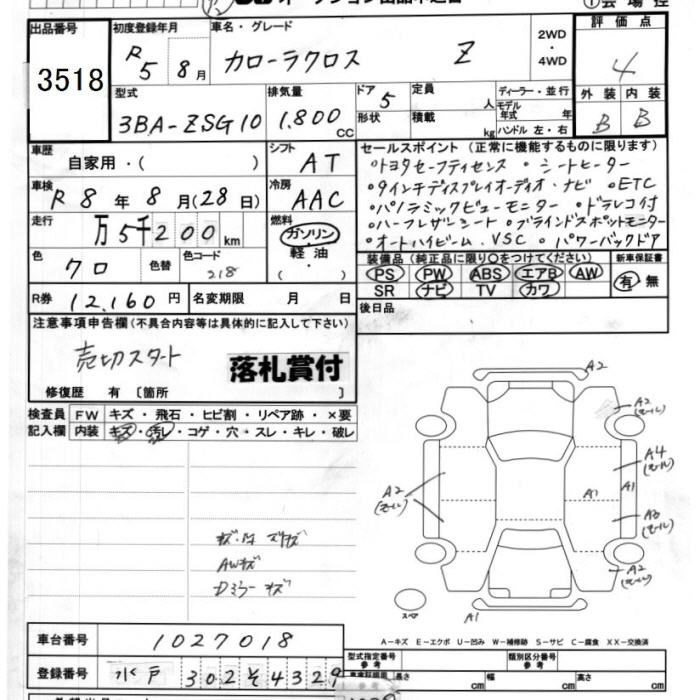 出品番号 初度登録年月 車名・グレード 2WD ・ 4WD 評価点
3518 R5 8月 カローラクロス Z 4
型式 排気量 ドア 5 定員 人 ディーラー・並行 外装 内装
3BA-ZSG10 1.800 cc 形状 積載 kg モデル年式 年 ハンドル 左・右 B B
車歴 自家用・( ) シフト AT
セールスポイント (正常に機能するものに限ります)
・トヨタセーフティセンス ・シートヒーター
・9インチディスプレイオーディオ・ナビ ・ETC
・パノラミックビューモニター ・ドラレコ付
・ハーフレザーシート ・ブラインドスポットモニター
・オートハイビーム.VSC ・パワーバックドア
車検 R8年8月(28日) 冷房 AAC
走行 万5千200km 燃料 ガソリン 軽油 ・( )
色 クロ 色替 色コード 218
装備品 (純正品に限り○をつけてください) 新車保証書
PS PW ABS エアB AW 有・無
SR ナビ TV カワ
R券 12,160円 名変期限 月 日 後日品
注意事項申告欄 (不具合内容等は具体的に記入して下さい)
売切スタート
落札賞付
修復歴 有 〔箇所 〕
検査員記入欄 FW キズ・飛石・ヒビ割・リペア跡・×要
内装 キズ・汚レ・コゲ・穴・スレ・キレ・破レ
AWキズ
Dミラーキズ
A2
A2(モール)
A4(モール)
A1
A1
A2(モール)
A2(モール)
A1
スペア
A-キズ E-エクボ U-凹み W-補修跡 S-サビ C-腐食 XX-交換済
車台番号 1027018
型式指定番号 参考 類別区分番号 参考
登録番号 水戸 302 そ 4329
長さ cm 幅 cm 高さ cm